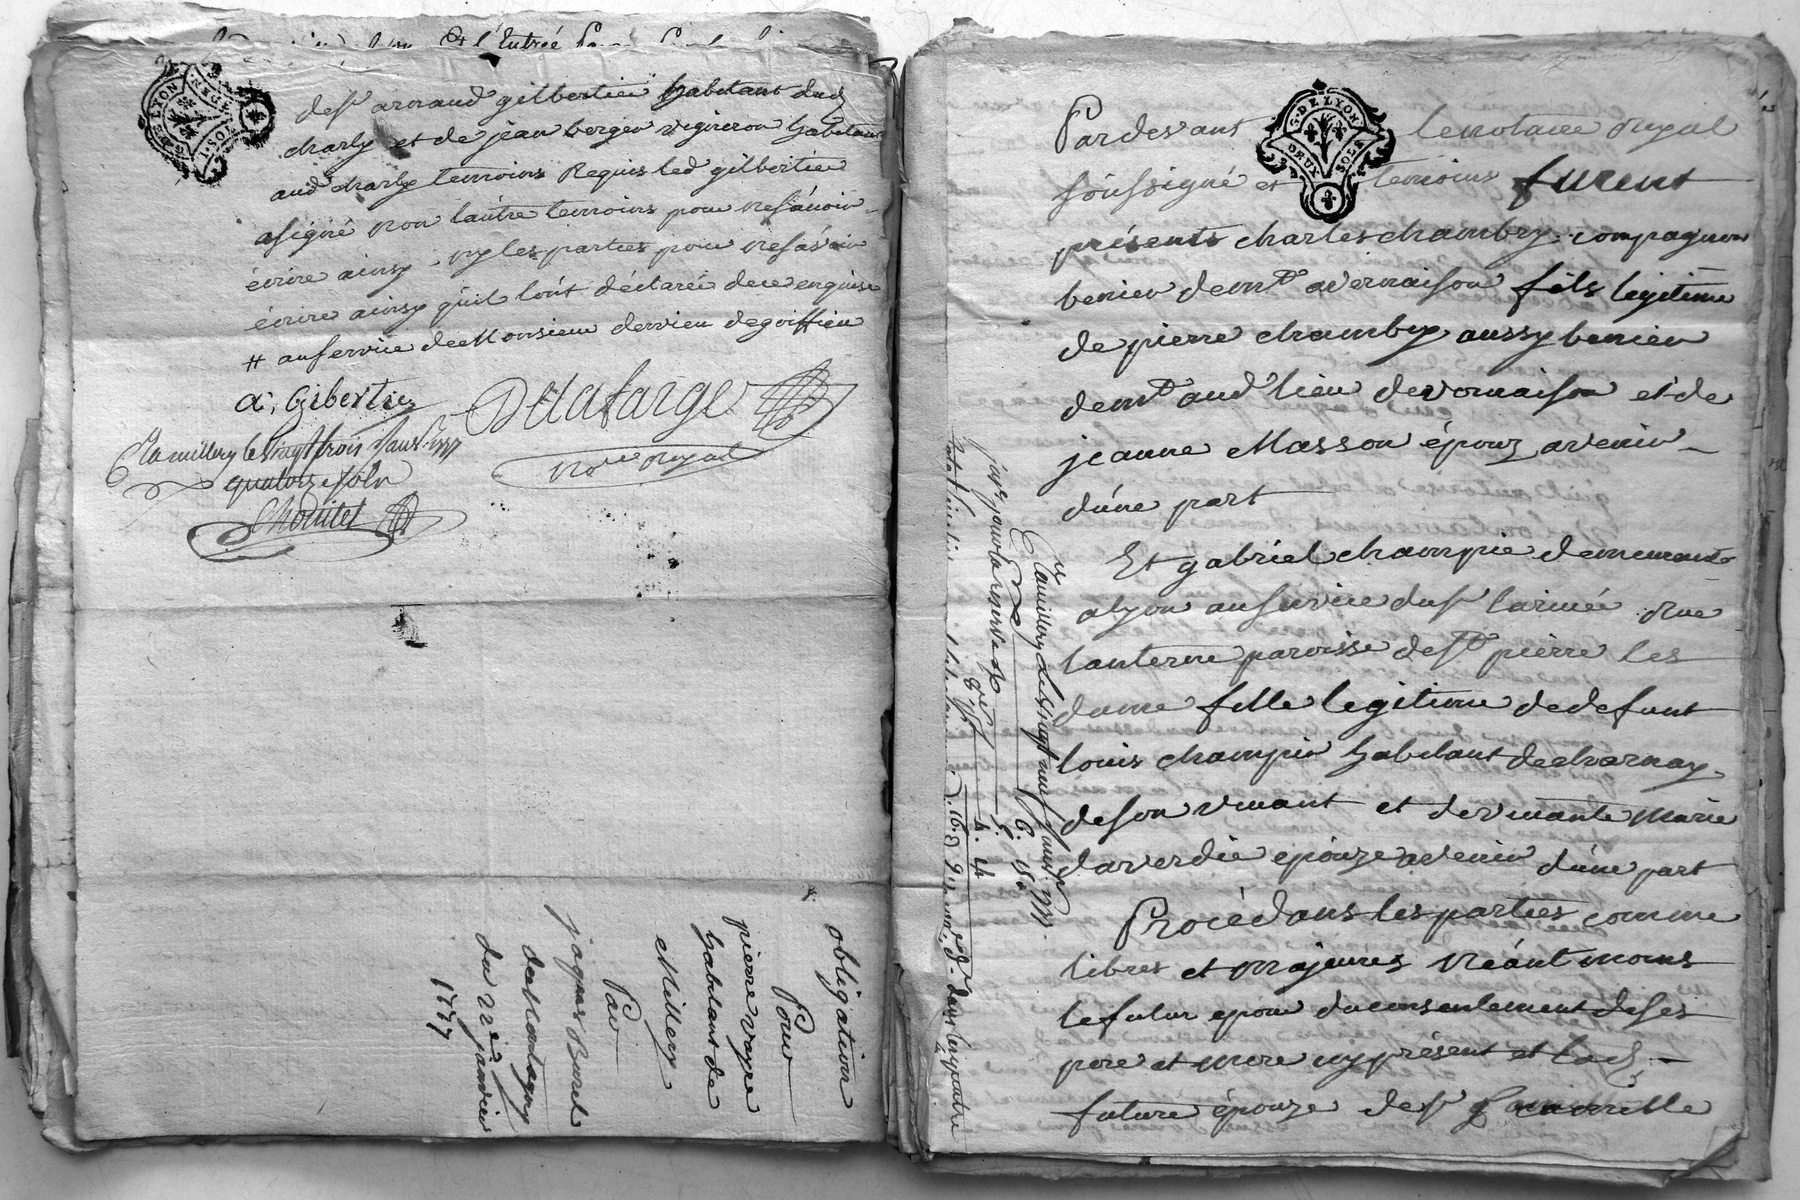 de sr arnaud gilbertier habitant dud
charly et de jean berger vigneron habitant
aud charly temoins Requis led gilbertier
a signé non lautre temoins pour ne sçavoir
écrire ainsy ny les parties pour ne sçavoir
écrire ainsy quil l'ont déclaré de ce enquise
# au service de Monsieur dervieu de goiffieu
a, Gibertier
Delafarge
Nore Royal
C a millery le vingt trois janv. 1777
quatorze sols
obligation
Pour
pierre voyre
habitant de
Millery
Par
jaques Burel
de Montagny
du 22e janvier
1777
G. DE LYON
DEUX SOLS
Pardevant le notaire Royal
soussigné et temoins furent
présents charles chambry compagnon
benier demt a vernaison fils legitime
de pierre chambry aussy benier
demt aud lieu de vernaison et de
jeanne Masson époux avenir
d'une part
Et gabriel champie demeurant
a lyon au service du sr larmée Rue
lanterne paroisse de st pierre les
dame fille legitime de defunt
louis champin habitant de charnay
de son vivant et de vivante Marie
daverdie epouze avenir d'une part
Procédans les parties comme
libres et majeures Néantmoins
le futur epoux du consentement de ses
pere et mere icy présent et lad
future épouze de sr
C a millery le vingt neuf janvr 1777.